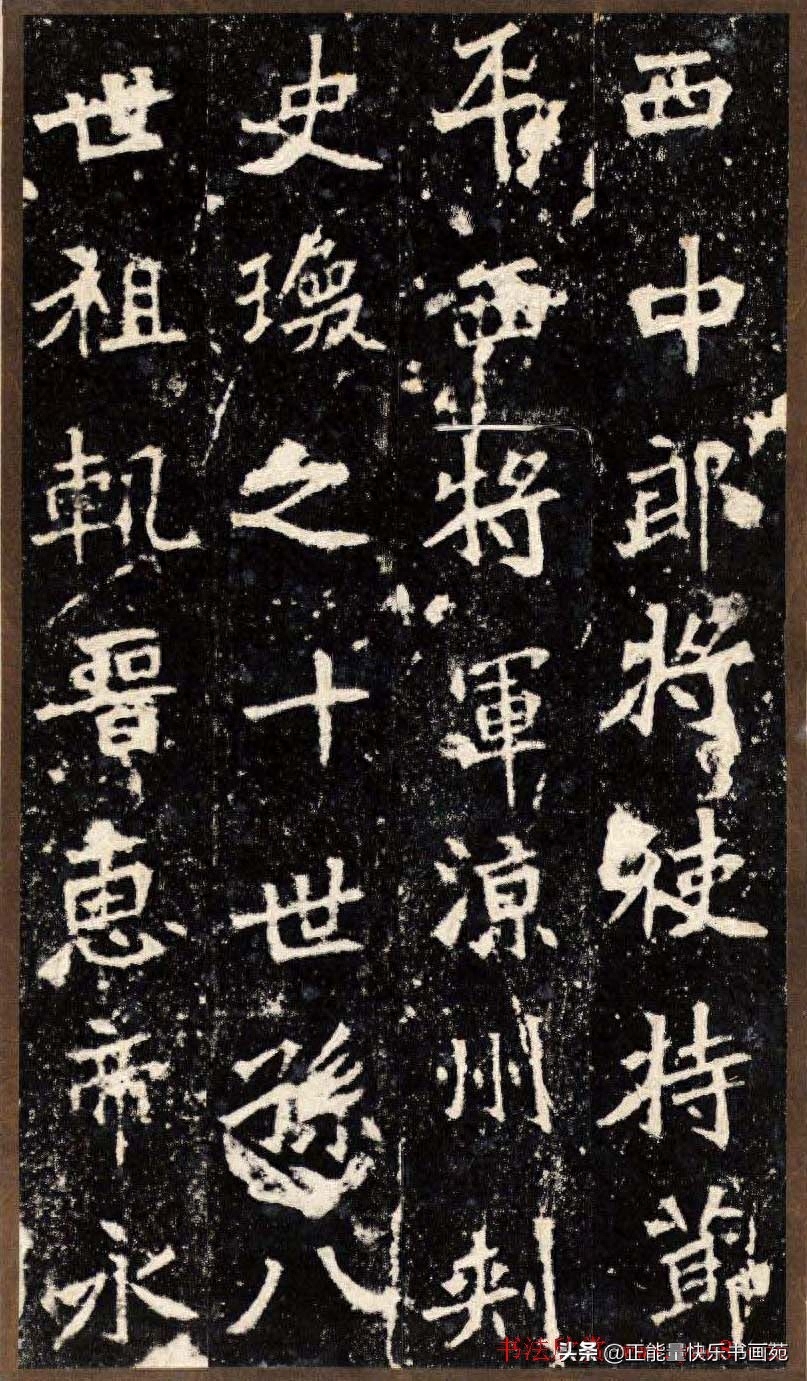 西中郎將使持節
平西將軍涼州刾
史瓊之十世孫八
世祖軌晉惠帝永
书法欣赏
头条 @正能量快乐书画苑